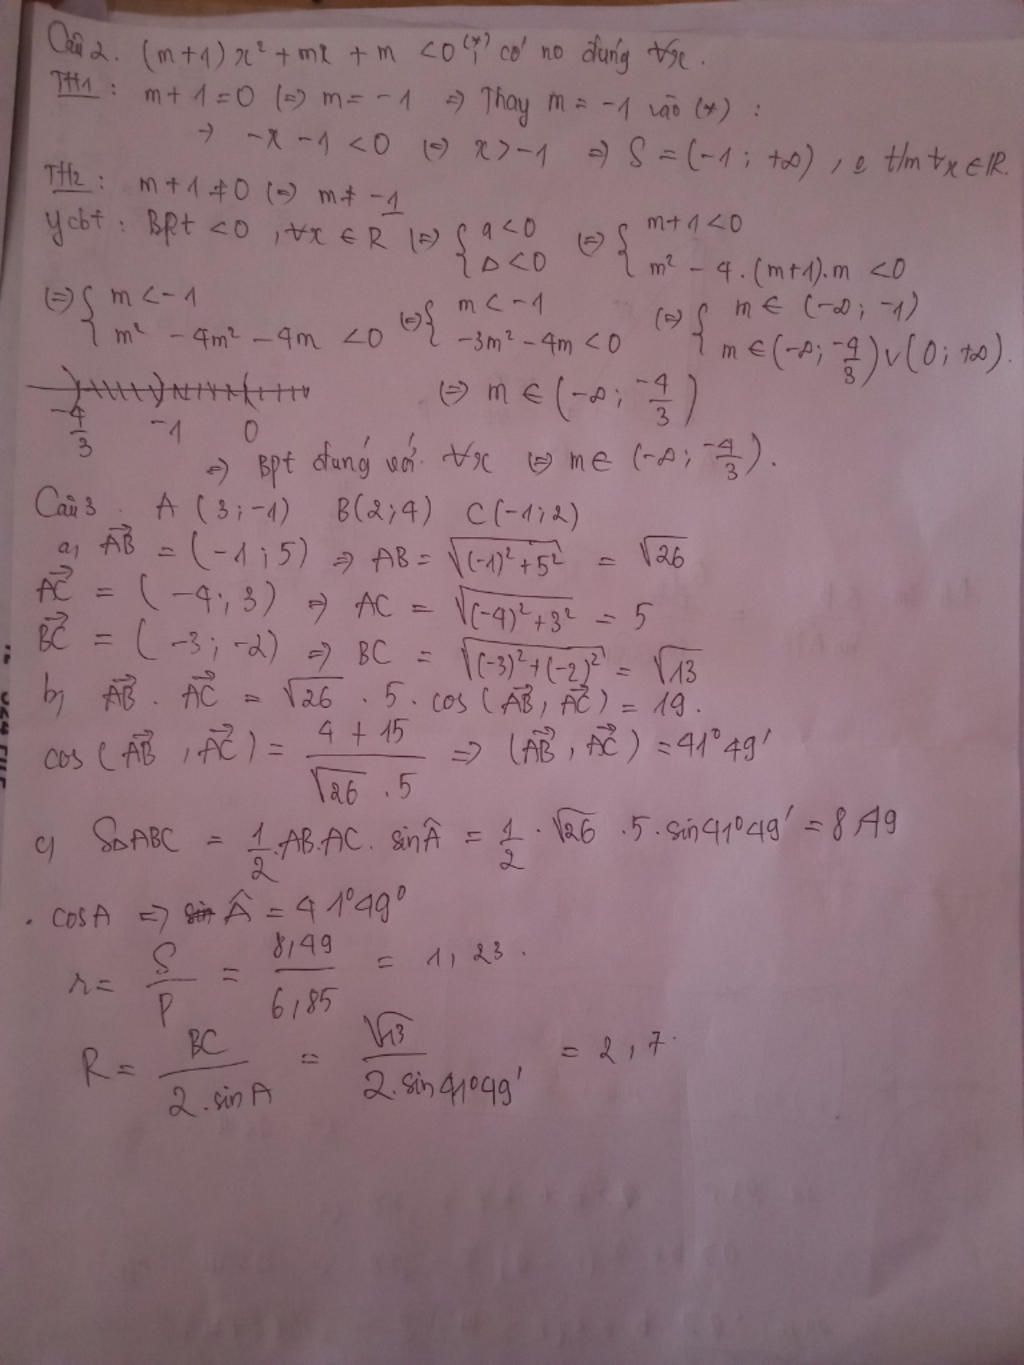 Câu 2. (m+1)x² + mx + m < 0 (*), có no đúng ∀x.
TH1: m+1=0 (=) m=-1 => Thay m=-1 vào (*):
→ -x - 1 < 0 (=) x > -1 => S = (-1; +∞), t/m ∀x ∈ R.
TH2: m+1≠0 (=) m≠-1
ycbt: Bpt <0, ∀x ∈ R (=) { a<0 ; Δ<0 (=) { m+1<0 ; m² - 4.(m+1).m <0
(=) { m<-1 ; m² - 4m² - 4m <0 (=) { m<-1 ; -3m² - 4m <0 (=) { m ∈ (-∞; -1) ; m ∈ (-∞; -4/3) ∪ (0; +∞).
-4/3 -1 0 (=) m ∈ (-∞; -4/3)
=> Bpt đúng với ∀x (=) m ∈ (-∞; -4/3).
Câu 3. A(3;-1) B(2;4) C(-1;2)
a, AB→ = (-1;5) => AB = √((-1)²+5²) = √26
AC→ = (-4;3) => AC = √((-4)²+3²) = 5
BC→ = (-3;-2) => BC = √((-3)²+(-2)²) = √13
b, AB→ . AC→ = √26 . 5 . cos(AB→, AC→) = 19.
cos(AB→, AC→) = (4+15)/(√26 . 5) => (AB→, AC→) = 41°49'
c, SΔABC = 1/2.AB.AC.sinÂ = 1/2 . √26 . 5 . sin41°49' = 8,49
. cosA => Â = 41°49°
r = S/P = 8,49/6,85 = 1,23.
R = BC/(2.sinA) = √13/(2.sin41°49') = 2,7.